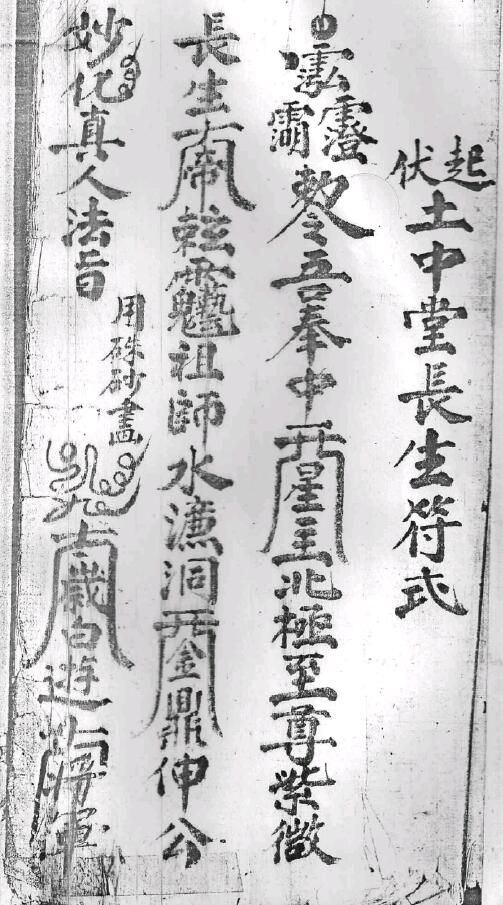 起伏土中堂長生符式
敕令吾奉中天星主北極至尊紫微
長生大帝玄靈祖師水濂洞天金鼎伸公
妙化真人法旨
用硃砂畫
太歲白遊將軍